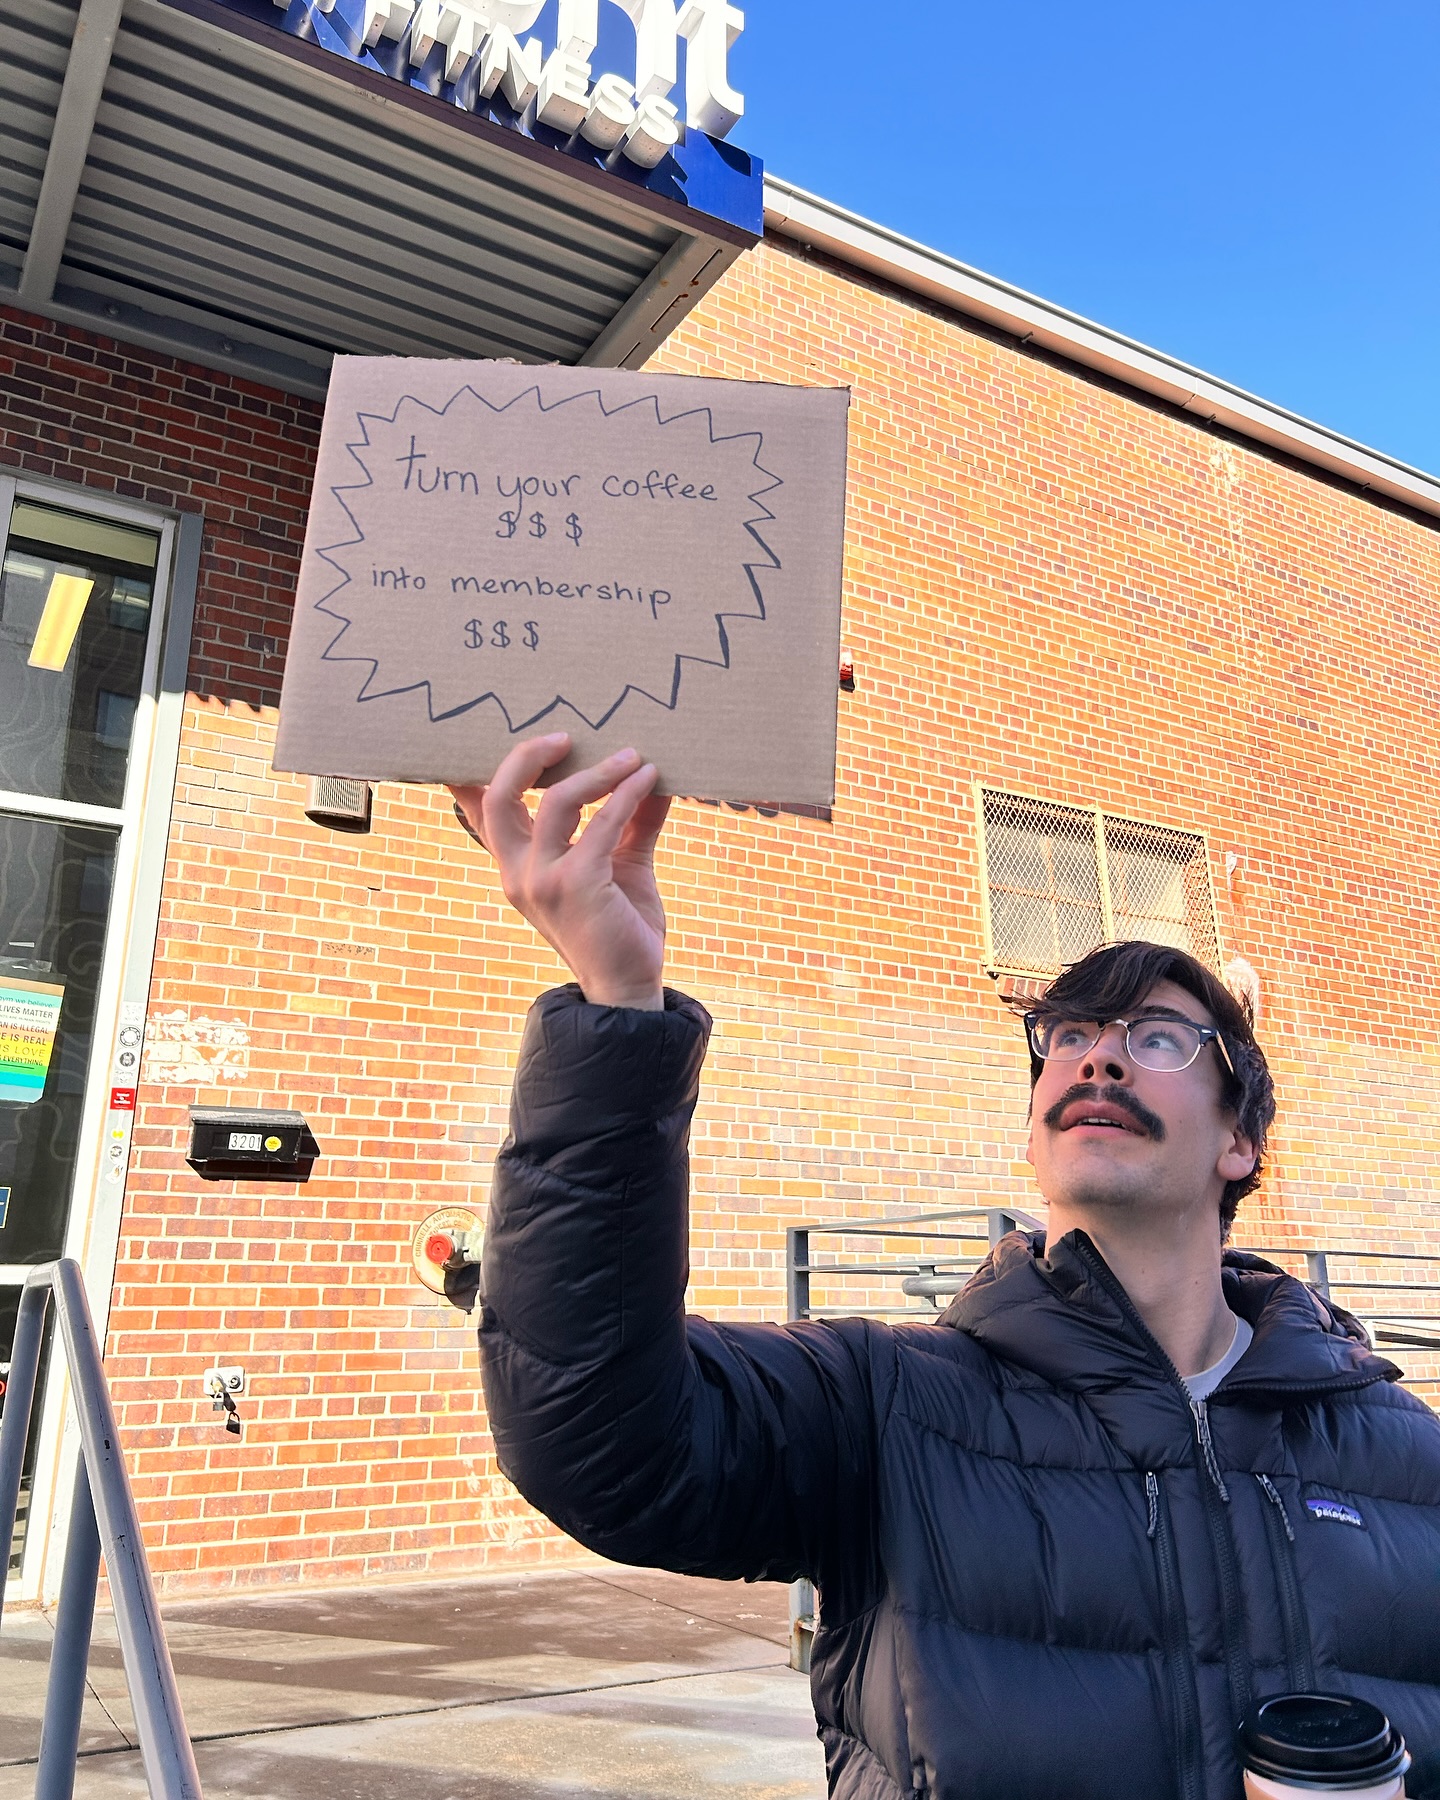 FITNESS
turn your coffee
$ $ $
into membership
$$$
LIVES MATTER
IS ILLEGAL
IS REAL
IS LOVE
EVERYTHING
3201
patagonia